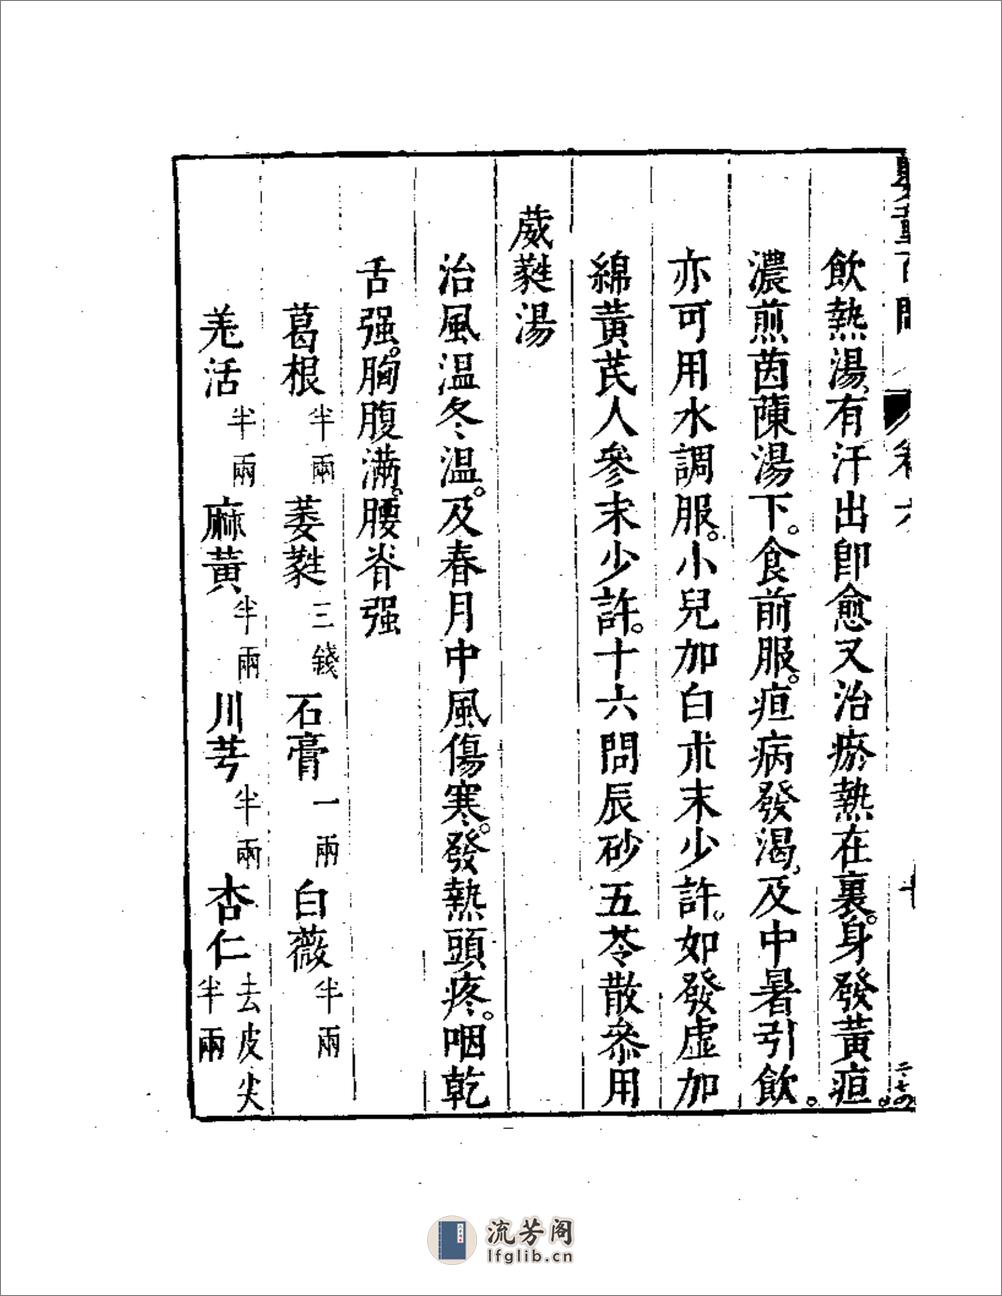 飲熱湯,有汗出卽愈又治瘀熱在裏。身發黃疸。
濃煎茵蔯湯下。食前服。疸病發渴,及中暑引飲。
亦可用水調服。小兒加白朮末少許。如發虛加
綿黃芪人參末少許。十六問辰砂五苓散叅用
葳蕤湯
治風溫冬溫。及春月中風傷寒。發熱頭疼。咽乾
舌强。胸腹滿。腰脊强
葛根 半兩 萎蕤 三錢 石膏 一兩 白薇 半兩
羗活 半兩 麻黃 半兩 川芎 半兩 杏仁 去皮尖 半兩
卷六
流芳阁
lfglib.cn